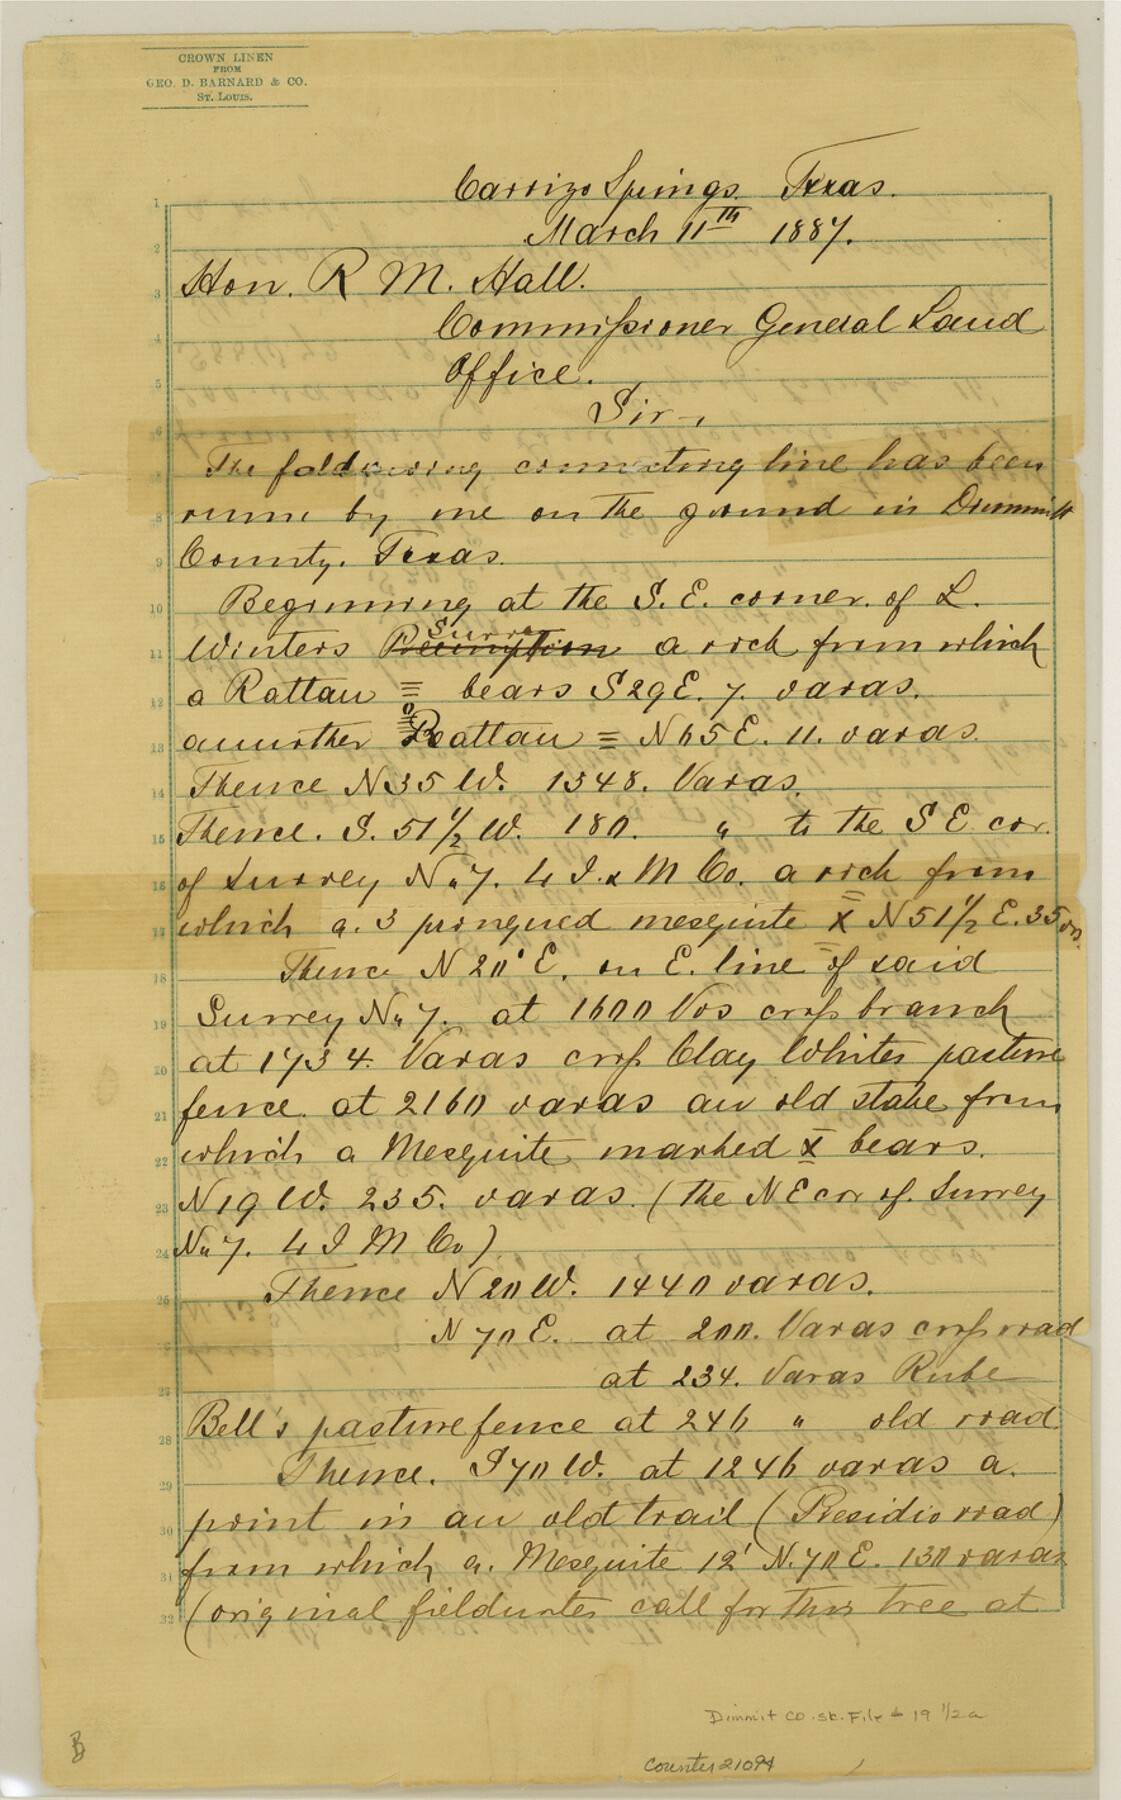 CROWN LINEN
FROM
GEO. D. BARNARD & CO.
ST. LOUIS.
Carrizo Springs. Texas.
March 11th 1887.
Hon. R M. Hall.
Commissioner General Land
Office.
Sir,
The following connecting line has been
runn by me on the ground in Dimmitt
County. Texas.
Beginning at the S. E. corner. of L.
Winters Survey a rock from which
a Rattan ≡ bears S 29 E. 7. varas.
annother Rattan = N 65 E. 11. varas.
Thence N 35 W. 1348. Varas.
Thence. S. 51 1/2 W. 180. " to the S E cor.
of Survey No 7. G I. & M Co. a rock from
which a. 3 prongued mesquite X N 51 1/2 E. 35 vrs.
Thence N 20° E. on E. line of said
Survey No 7. at 1600 Vrs cross branch
at 1734. Varas cross Clay Whites pasture
fence. at 2160 varas an old stake from
which a Mesquite marked X bears.
N 19 W. 235. varas. (the N E cor of. Survey
No 7. G I M Co)
Thence N 20 W. 1440 varas.
N 70 E. at 200. Varas cross road
at 234. Varas Rube
Bell's pasture fence at 246 " old road
Thence. S 70 W. at 1246 varas a.
point in an old trail (Presidio road)
from which a. Mesquite 12' N. 70 E. 130 varas
(original fieldnotes call for this tree at
Dimmit Co. Sk. File # 19 1/2 a
Counter 21094
B
1
2
3
4
5
6
7
8
9
10
11
12
13
14
15
16
17
18
19
20
21
22
23
24
25
26
27
28
29
30
31
32